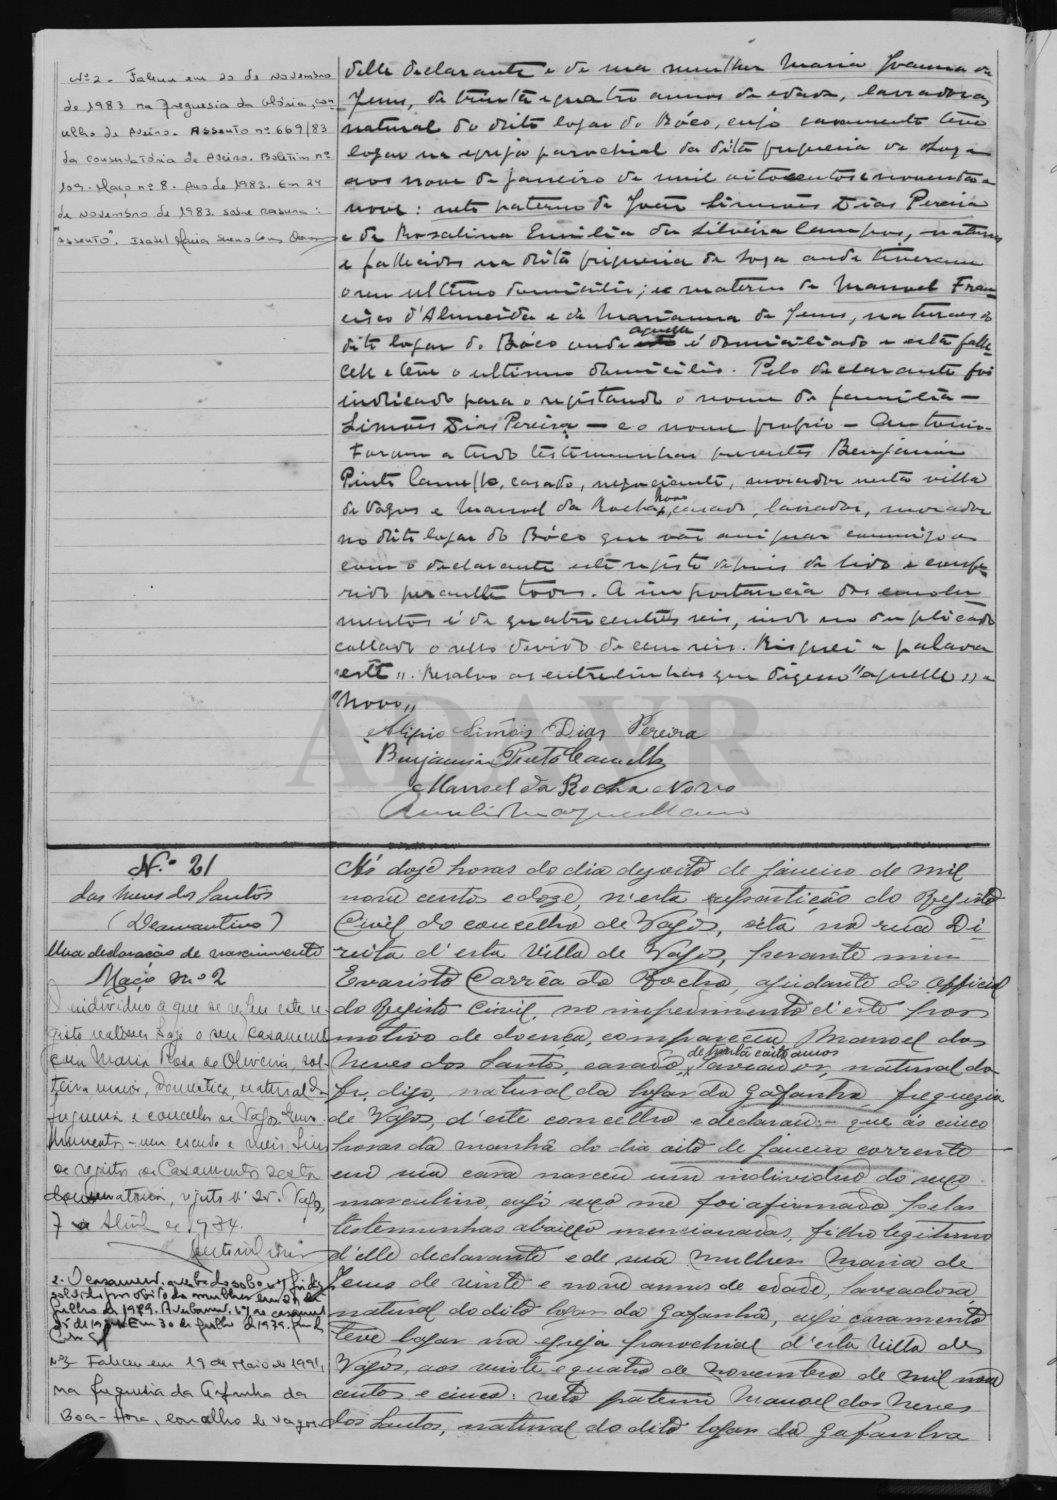 Nº 2 - Faleceu em 20 de Novembro
de 1983 na freguesia da Glória, con-
celho de Aveiro. Assento nº 669/83
da conservatória de Aveiro. Boletim nº
109. Maço nº 8. Ano de 1983. Em 24
de Novembro de 1983. sobre rasura:
"Assento". Isabel Maria
delle declarante e de sua mulher Maria Joanna de
Jesus, de trinta e quatro annos de edade, lavradora,
natural do dito logar do Bóco, cujo casamento teve
logar na egreja parochial da dita freguesia de Soza
aos nove de janeiro de mil oitocentos e noventa e
nove: neto paterno de João Simões Dias Pereira
e de Rosalina Emilia da Silveira Campos, naturaes
e fallecidos na dita freguesia de Soza onde tiveram
o seu ultimo domicilio; e materno de Manuel Fran-
cisco d'Almeida e de Marianna de Jesus, naturaes do
dito logar do Bóco onde aquelle é domiciliado e esta falle-
ceu e teve o ultimo domicilio. Pelo declarante foi
indicado para o registando o nome de familia -
Simões Dias Pereira - e o nome proprio - Antonio.
Foram a tudo testemunhas presentes Benjamin
Pinto Camello, casado, negociante, morador nesta villa
de Vagos e Manoel da Rocha Novo, casado, lavrador, morador
no dito logar do Bóco que vão assignar commigo e
com o declarante este registo depois de lido e confe-
rido perante todos. A importancia dos emolu
mentos é de quatrocentos reis, indo no duplicado
collado o sello devido de cem reis. Risquei a palavra
"este". Resalvo as entrelinhas que dizem "aquelle" e
"Novo"
Alipio Simões Dias Pereira
Benjamin Pinto Camello
Manoel da Rocha Novo
ADAVR
N.º 21
das Neves dos Santos
(Deamantino)
Uma declaração de nascimento
Maço nº 2
O individuo a que se refere este re-
gisto realisou hoje o seu casamento
com Maria Rosa de Oliveira, sol-
teira, maior, domestica, natural da
freguesia e concelho de Vagos. Emo-
lumentos - um escudo e
de registo de Casamento
Vagos,
7 de Abril de 1934.
2. O casamento averbado sob o nº 1 foi dis-
solvido por obito da mulher em
Julho de 1979.
Em 30 de Julho de 1979.
Nº 3 Faleceu em 19 de Maio de 1991,
na freguesia da Gafanha da
Boa-Hora, concelho de Vagos.
Ás doze horas do dia dezoito de janeiro de mil
nove centos e doze, n'esta repartição do Registo
Civil do concelho de Vagos, sita na rua Di-
reita d'esta Villa de Vagos, perante mim
Evaristo Corrêa da Rocha, ajudante do Official
do Registo Civil, no impedimento d'este por
motivo de doença, compareceu Manoel das
Neves dos Santos, casado, de trinta e oito annos lavrador, natural da
fr, digo, natural do logar da Gafanha, freguezia
de Vagos, d'este concelho e declarou: - que ás cinco
horas da manhã do dia oito de janeiro corrente
em sua casa nasceu um individuo do sexo
masculino, cujo sexo me foi afirmado pelas
testemunhas abaixo mencionadas, filho legitimo
d'elle declarante e de sua mulher Maria de
Jesus de vinte e nove annos de edade, lavradora,
natural do dito logar da Gafanha, cujo casamento
teve logar na egreja parochial d'esta Villa de
Vagos, aos vinte e quatro de novembro de mil nove
centos e cinco: neto paterno Manoel das Neves
dos Santos, natural do dito logar da Gafanha